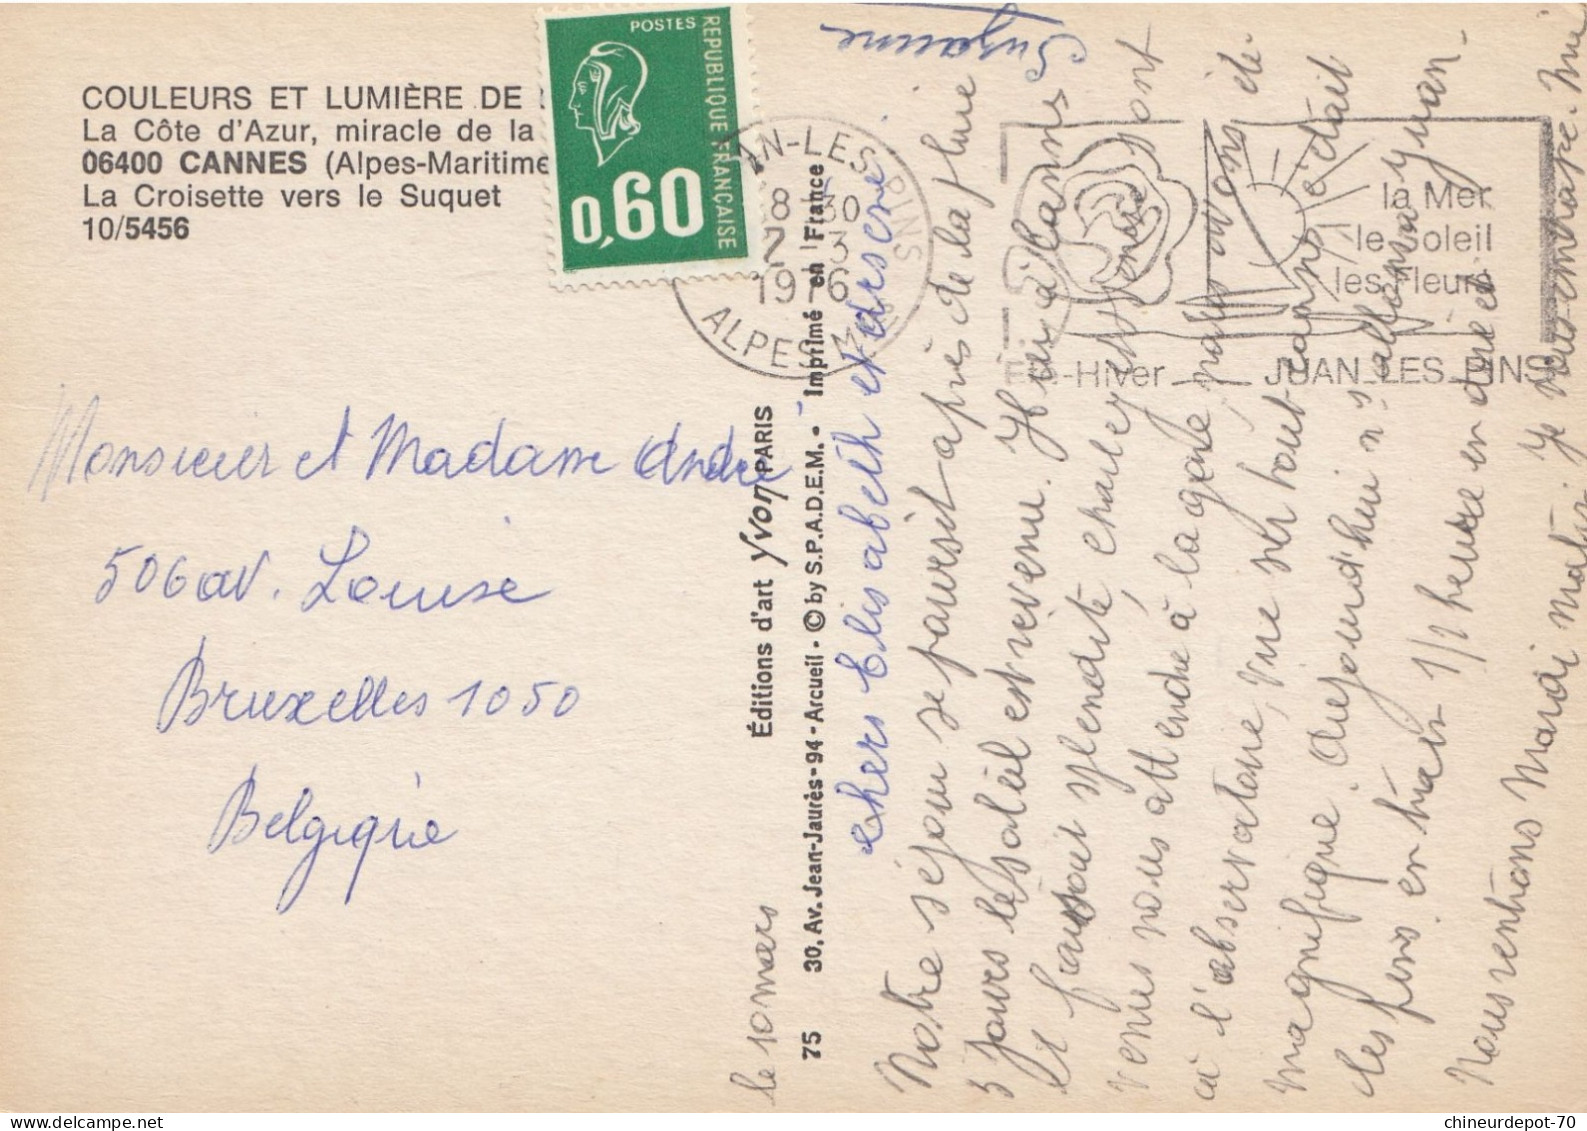 COULEURS ET LUMIÈRE DE
La Côte d'Azur, miracle de la
06400 CANNES (Alpes-Maritime
La Croisette vers le Suquet
10/5456
POSTES
REPUBLIQUE FRANÇAISE
0,60
AN-LES-PINS
8 30
1976
ALPES MME
la Mer
le Soleil
les fleurs
Eté-Hiver JUAN-LES-PINS
Monsieur et Madame André
506 av. Louise
Bruxelles 1050
Belgique
Éditions d'art Yvon PARIS
75 30, Av. Jean-Jaurès-94-Arcueil - © by S.P.A.D.E.M. - Imprimé en France
le 10 mars
chers Elisabeth et
Notre séjour se poursuit après de la pluie
3 jours le soleil est revenu. Hier à Cannes
il faisait splendide, charles et sont
venus nous attendre à la gare, nous avons été
à l'observatoire, vue sur tout Cannes c'était
magnifique. Aujourd'hui ns allons à Juan-
les pins en train 1/2 heure en
Nous rentrions Mardi matin, je
Suzanne
chineurdepot-70